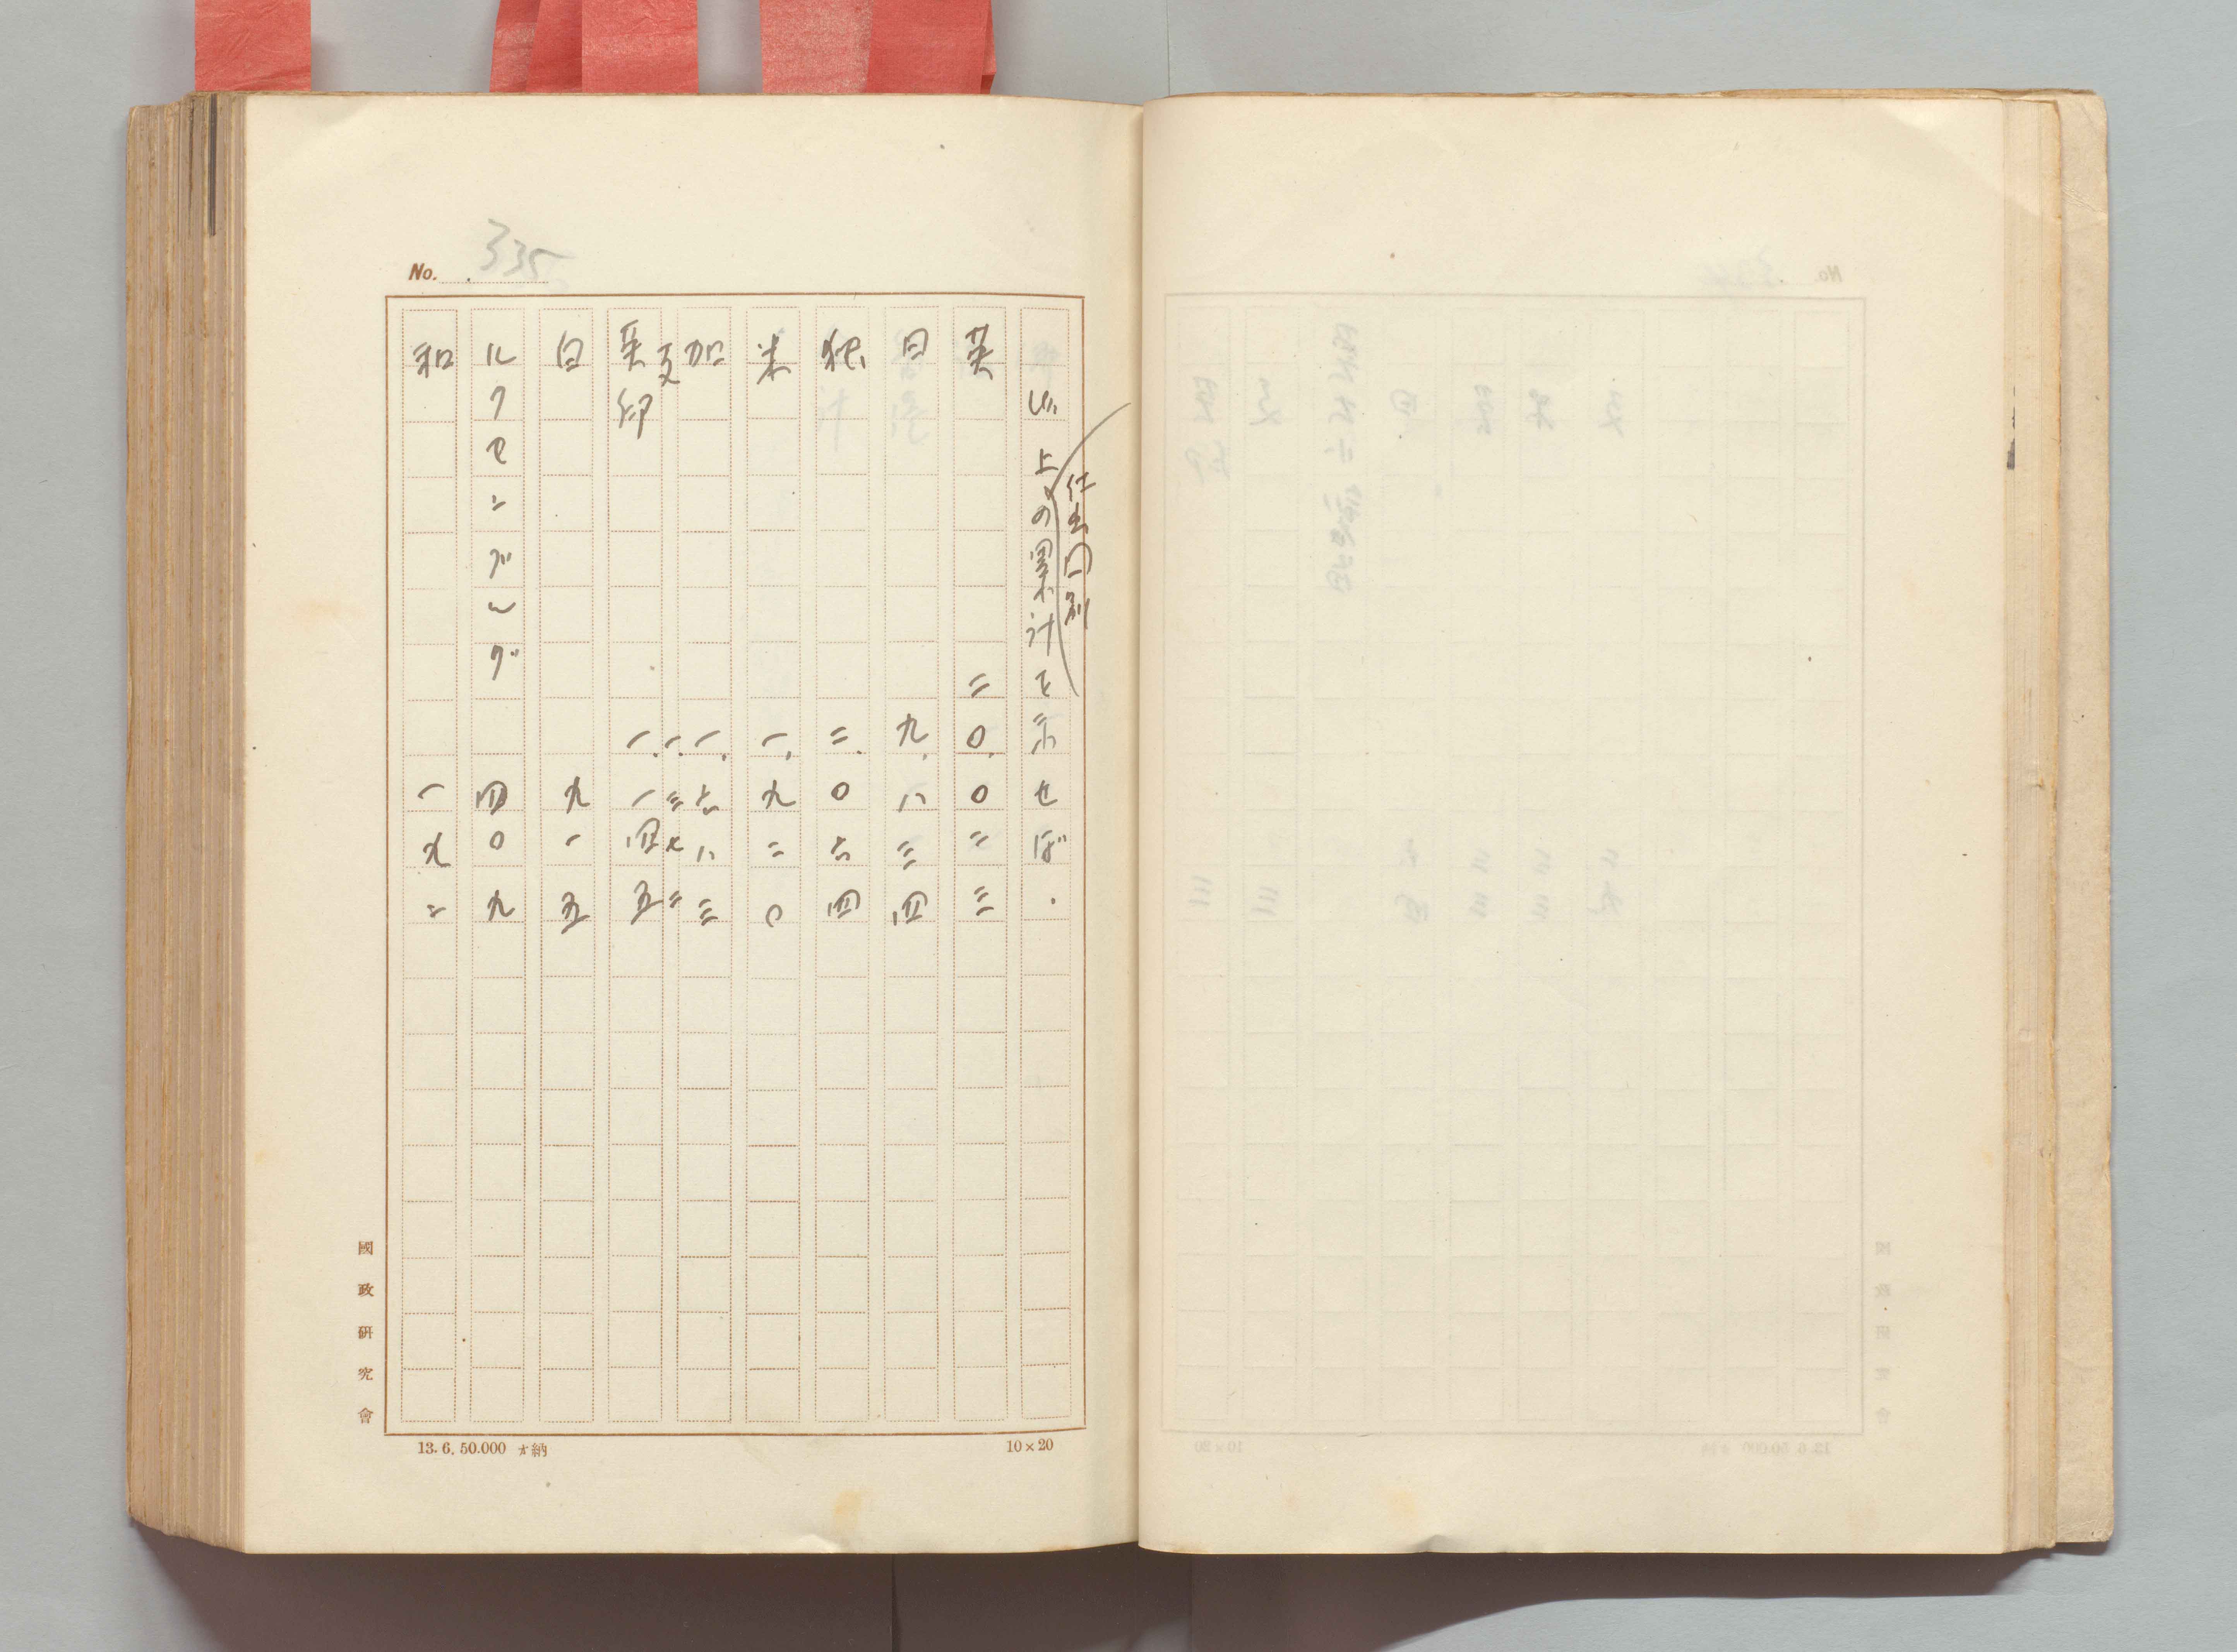 No. 335
仕出囗別
以上の累計を示せば、
英 二〇、〇二三
日 九、八三四
独 二、〇六四
米 一、九二〇
加 一、六八三
支 一、三七二
英印 一、一四五
白 九一五
ルクセンブルグ 四〇九
和 一九二
國政研究會
13. 6. 50.000
10×20